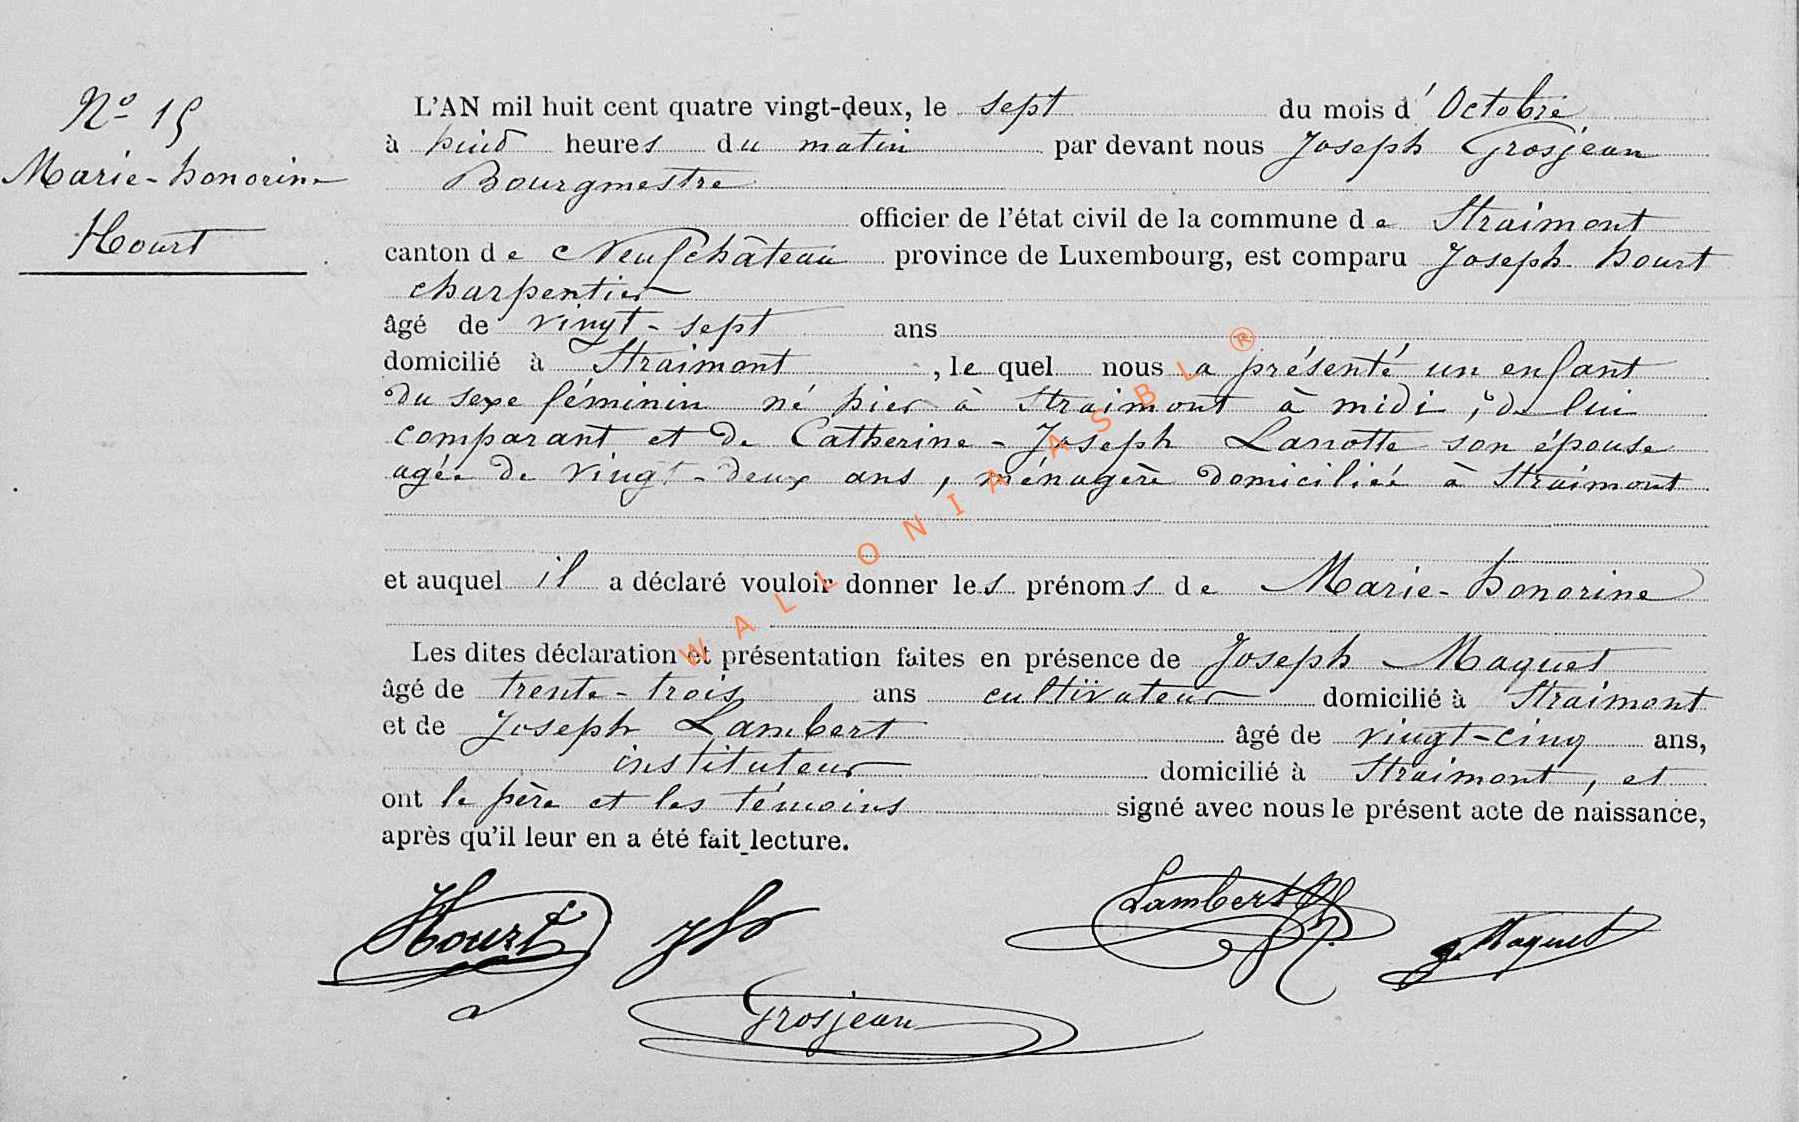 Nº 15
Marie-honorine
Hourt
L'AN mil huit cent quatre vingt-deux, le sept du mois d'Octobre
à huit heures du matin par devant nous Joseph Grosjean
Bourgmestre
officier de l'état civil de la commune de Straimont
canton de Neufchâteau province de Luxembourg, est comparu Joseph hourt
charpentier
âgé de vingt-sept ans
domicilié à Straimont, le quel nous a présenté un enfant
du sexe féminin né hier à Straimont à midi, de lui
comparant et de Catherine-Joseph Lanotte son épouse
agée de vingt-deux ans, ménagère domiciliée à Straimont
et auquel il a déclaré vouloir donner les prénoms de Marie-honorine
Les dites déclaration et présentation faites en présence de Joseph Maquet
âgé de trente-trois ans cultivateur domicilié à Straimont
et de Joseph Lambert âgé de vingt-cinq ans,
instituteur domicilié à Straimont, et
ont le père et les témoins signé avec nous le présent acte de naissance,
après qu'il leur en a été fait lecture.
Hourt Jh Lambert J. Maquet
Grosjean
WALLONIA ASBL ®